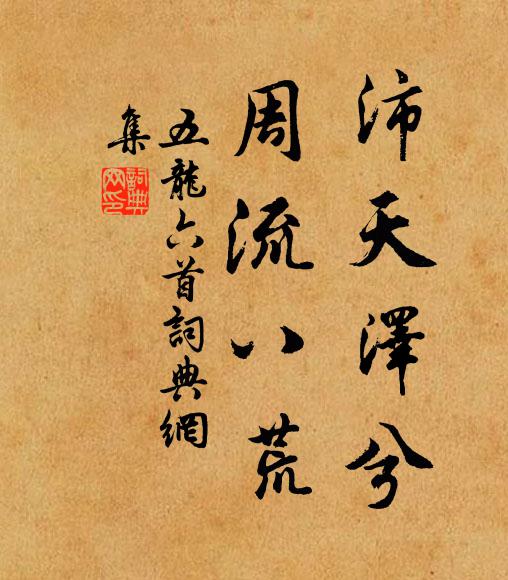 沛天澤兮
周流八荒
五龍六首詞典網
集
詞典
网印